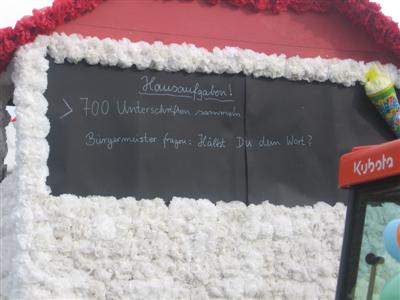 Hausaufgaben!
> 700 Unterschriften sammeln
Bürgermeister fragen: Hälst Du dein Wort?
Kubota